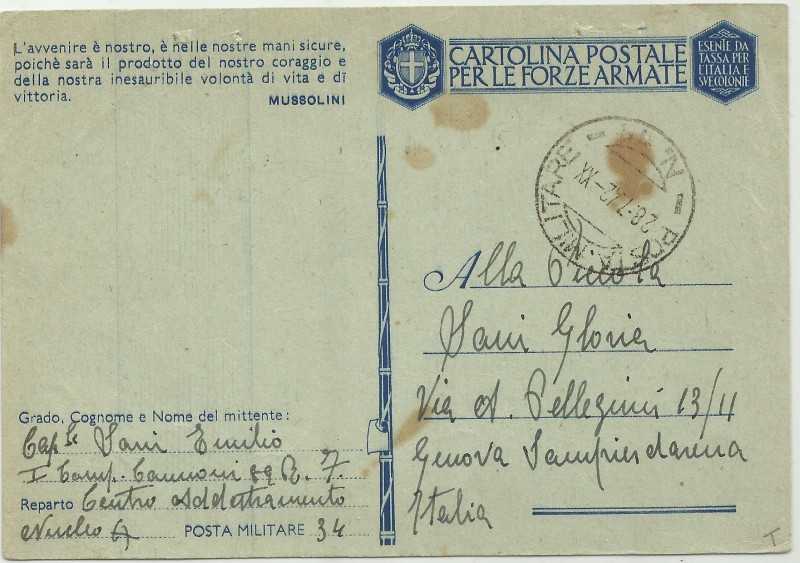 L'avvenire è nostro, è nelle nostre mani sicure,
poichè sarà il prodotto del nostro coraggio e
della nostra inesauribile volontà di vita e di
vittoria.
MUSSOLINI
CARTOLINA POSTALE
PER LE FORZE ARMATE
ESENTE DA
TASSA PER
L'ITALIA E
SVE COLONIE
POSTA MILITARE - N.
28-7-42-XX
Alla
Sani Gloria
Via A. Pellegrini 13/11
Genova Sampierdarena
Italia
Grado, Cognome e Nome del mittente:
Cap.le Sani Emilio
I Comp. Cannoni 89 R. F.
Reparto Centro Addestramento
Nucleo A POSTA MILITARE 34
T